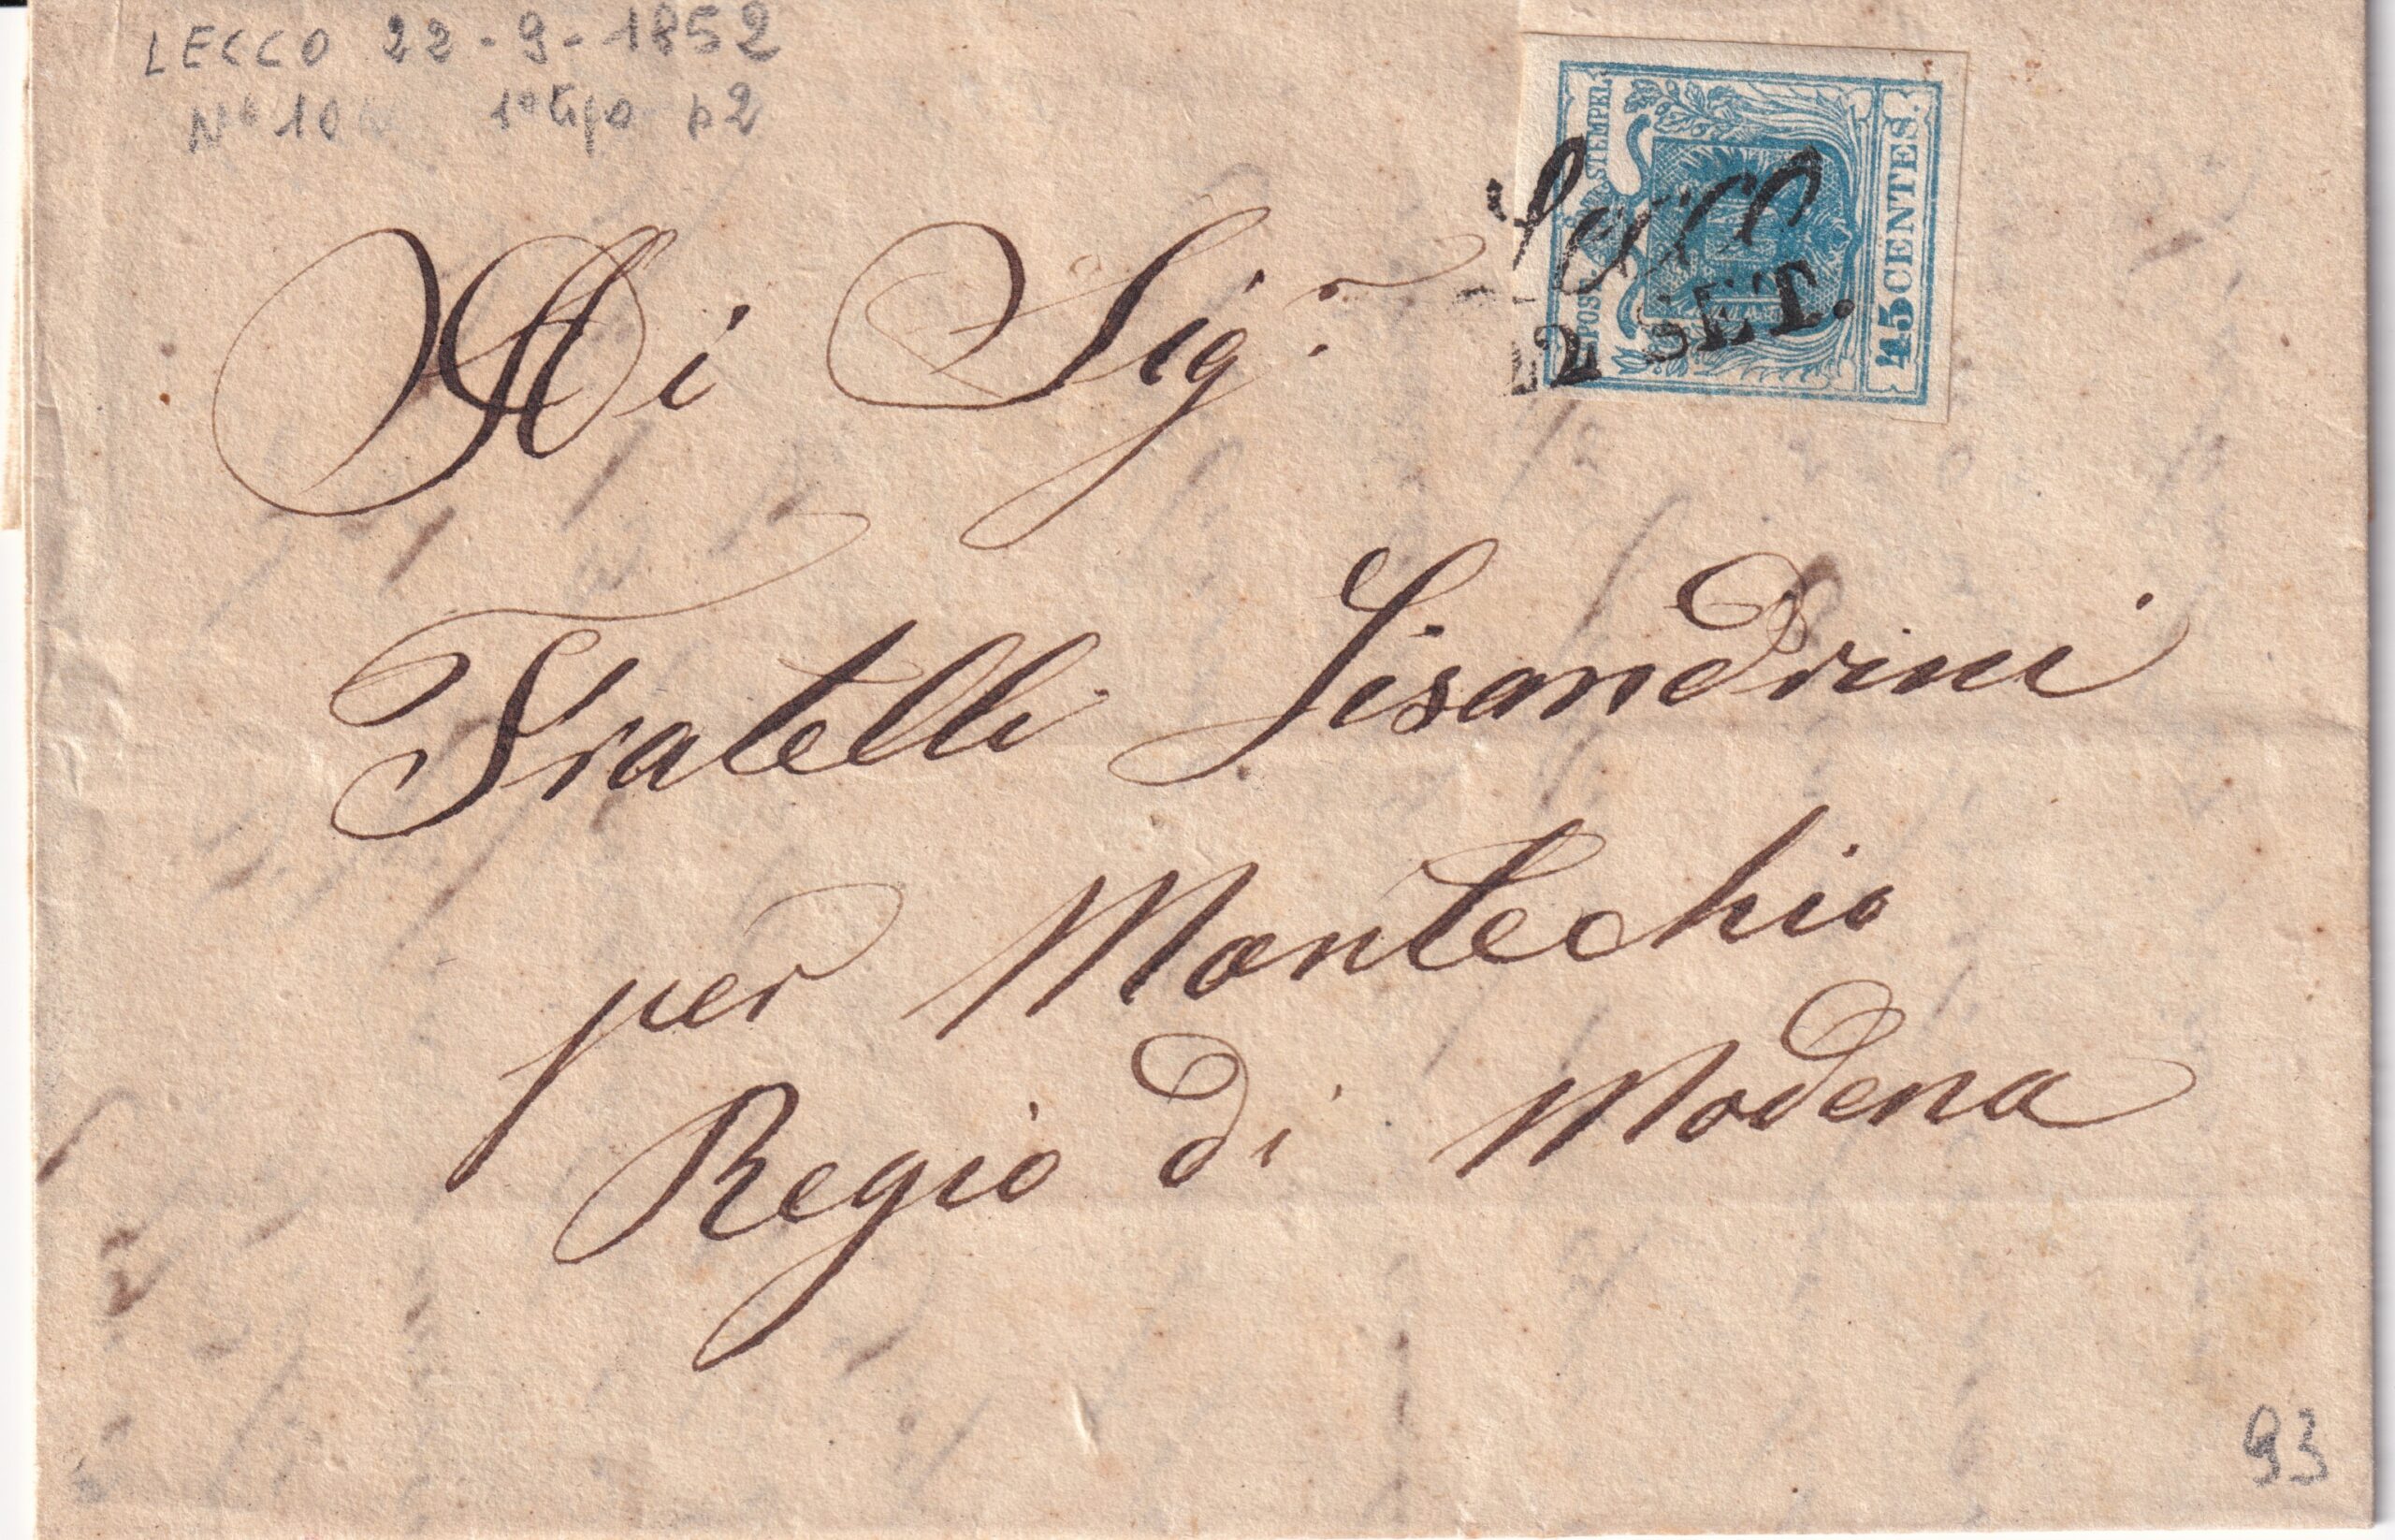 LECCO 22-9-1852
N° 10 1° tipo p2
K.K. POST-STEMPEL
45 CENTES.
Lecco
22 SET.
Ai Sigr.
Fratelli Lisandrini
per Montechio
Regio di Modena
93